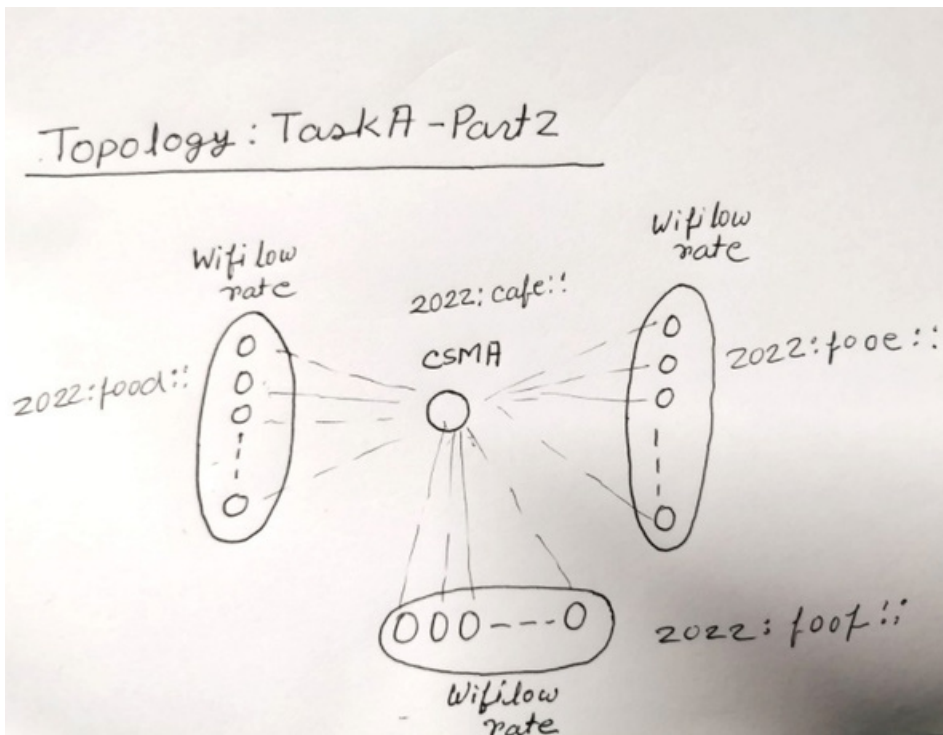 Topology: TaskA-Part2
Wifi low
rate
2022:food::
2022:cafe::
CSMA
Wifi low
rate
2022:fooe::
2022:foof::
Wifi low
rate